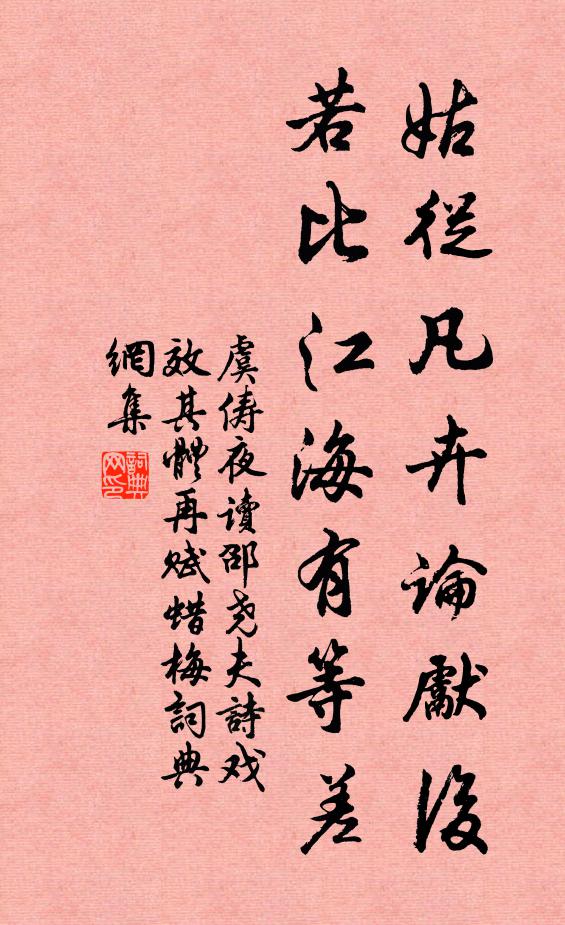 姑從凡卉論獻後
若比江海有等差
虞儔夜讀邵堯夫詩戏
效其體再赋蜡梅詞典
網集
詞典
网印